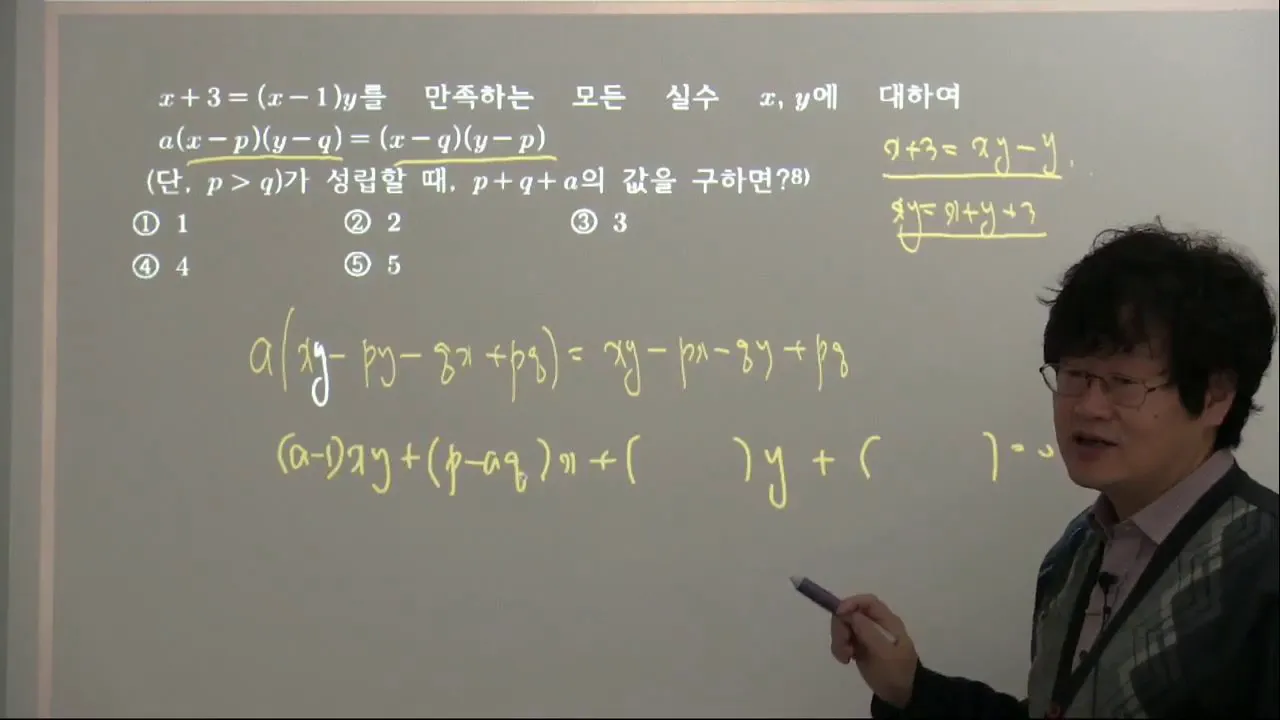 x+3=(x-1)y를 만족하는 모든 실수 x, y에 대하여
a(x-p)(y-q)=(x-q)(y-p)
(단, p>q)가 성립할 때, p+q+a의 값을 구하면?8)
① 1 ② 2 ③ 3
④ 4 ⑤ 5
x+3=xy-y.
xy=x+y+3
a(xy-py-qx+pq)=xy-px-qy+pq
(a-1)xy+(p-aq)x+( )y+( )=0